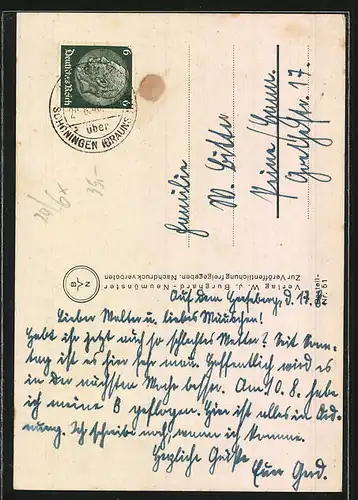 Deutsches Reich
6
6
SCHÖNINGEN (BRAUNS
über
Familie
W. Bitter
Peine/Hann.
17.
Verlag W. J. Burghard - Neumünster
Zur Veröffentlichung freigegeben. Nachdruck verboten
N B
Bestell-
Nr. 51
Auf dem Heeseberg, d. 17.
Lieber Walter u. liebes
Habt ihr jetzt auch so schlechtes Wetter? Seit Sonn-
tag ist es hier sehr mau. Hoffentlich wird es
in der nächsten Woche besser. Am 10. 8. habe
ich meine B geflogen. Hier ist alles in Ord-
nung. Ich schreibe noch, wann ich komme.
Herzliche Grüße
Euer Gerd.